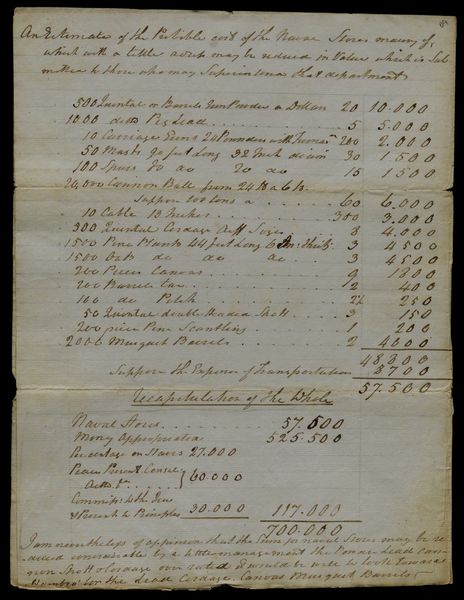 An Estimate of the Possible cost of the Naval Stores many of,
which with a little adress may be reduced in Value which is Sub
mitted to those who may Superintend that department
500 Quintal or Barrels Gun Powder a Dollars 20 10.000
1000 ditto Pig Lead 5 5.000
10 Carriage Guns 24 Pounders with 200 2.000
50 Masts 90 feet Long 32 Inch diam 30 1500
100 Spars 80 do 20 do 15 1500
20,000 Cannon Ball from 24 lb a 6 lb
Suppose 100 tons a 60 6.000
10 Cable 12 Inches 300 3.000
300 Quintal Cordage diff Sizes 8 4.000
1500 Pine Planks 44 feet Long 6 In: thick 3 4500
1500 Oak do do do 3 4500
200 Pieces Canvas 9 1800
200 Barrels Tar 2 400
100 do Pitch 2½ 250
50 Quintal double Headed Shott 3 150
200 piece Pine Scantling 1 200
2000 Musquet Barrels 2 4000
48.800
Suppose the Expence of Transportation 8700
57.500
Recapitulation of the Whole
Naval Stores 57.500
Money Appropriated 525.500
Percentage on Stores 27.000
Peace Present Consul
60.000
Commiss: to the Jew
& Presents to Principles 30.000 117.000
700.000
I am nevertheless of oppinion that the Sum for naval Stores may be re
duced considerable by a little management the Powder Lead Can
non Shott & Cordage over rated I would be well to look towards
for the Lead Cordage Canvas Musquet Barrels